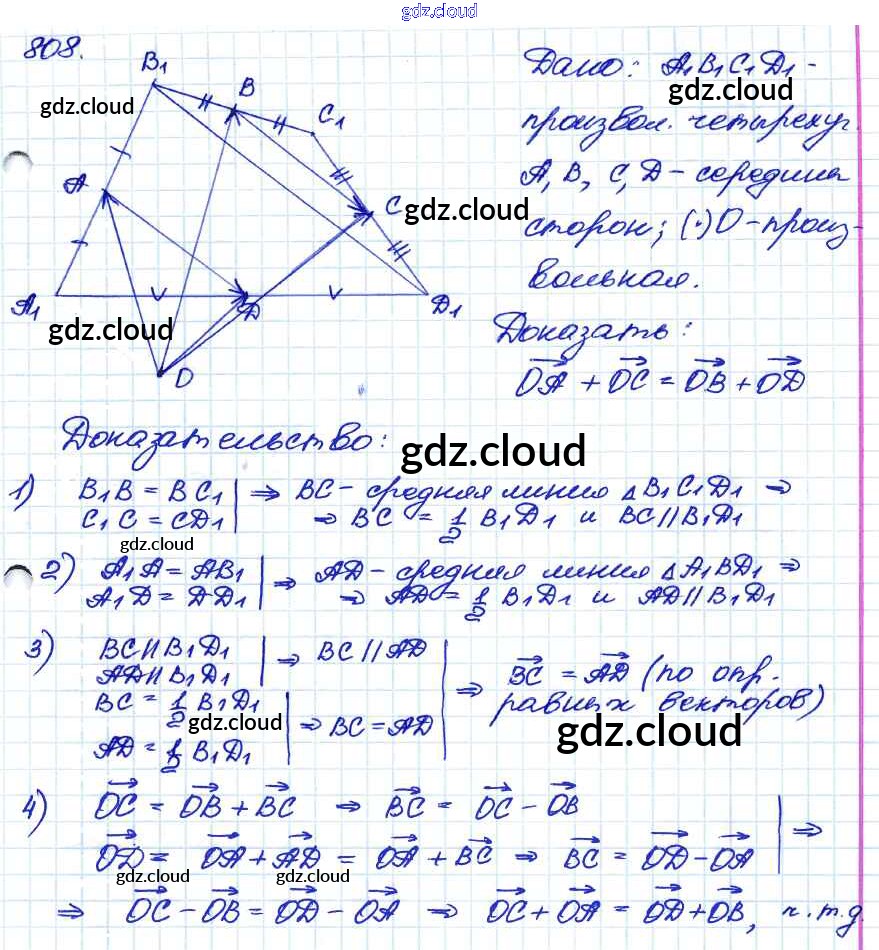 gdz.cloud
808.
B₁
B
C₁
A
C
A₁
D
D₁
O
gdz.cloud
gdz.cloud
gdz.cloud
Дано: A₁B₁C₁D₁ -
gdz.cloud
произвол. четырехуг.
A, B, C, D - середина
сторон; (·) O - произ-
вольная.
Доказать:
OA + OC = OB + OD
Доказательство:
gdz.cloud
1) B₁B = BC₁ | ⇒ BC - средняя линия △B₁C₁D₁ ⇒
C₁C = CD₁ | ⇒ BC = 1/2 B₁D₁ и BC ∥ B₁D₁
gdz.cloud
2) A₁A = AB₁ | ⇒ AD - средняя линия △A₁BD₁ ⇒
A₁D = DD₁ | ⇒ AD = 1/2 B₁D₁ и AD ∥ B₁D₁
3) BC ∥ B₁D₁ | ⇒ BC ∥ AD | ⇒ BC = AD (по опр.
AD ∥ B₁D₁
BC = 1/2 B₁D₁ | ⇒ BC = AD
равных векторов)
gdz.cloud
gdz.cloud
AD = 1/2 B₁D₁
4) OC = OB + BC ⇒ BC = OC - OB
OD = OA + AD = OA + BC ⇒ BC = OD - OA | ⇒
gdz.cloud
gdz.cloud
⇒ OC - OB = OD - OA ⇒ OC + OA = OD + OB, ч.т.д.